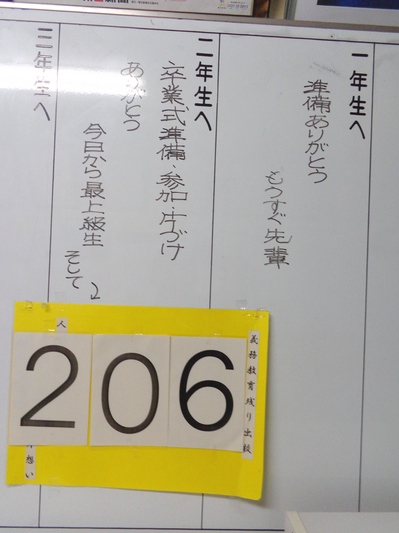 一年生へ
準備ありがとう
もうすぐ先輩
二年生へ
卒業式準備・参加・片づけ
ありがとう
今日から最上級生
そして
三年生へ
義務教育残り出校
206
人
想い